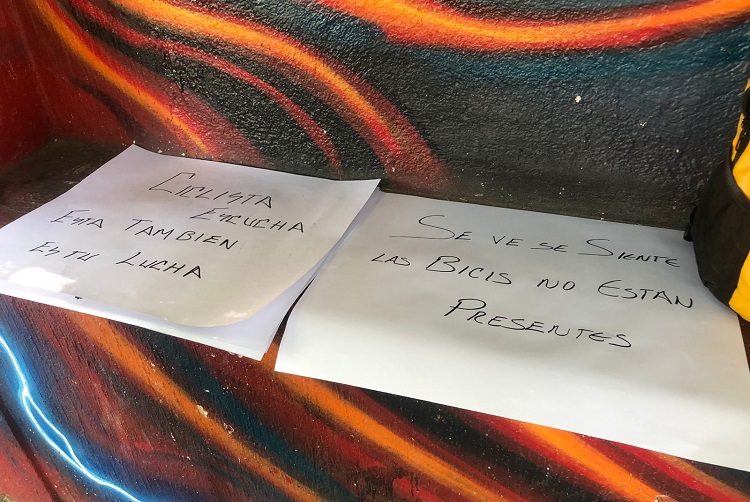 Ciclista
Escucha
Esta Tambien
Es tu Lucha
Se ve se Siente
las Bicis no Estan
Presentes